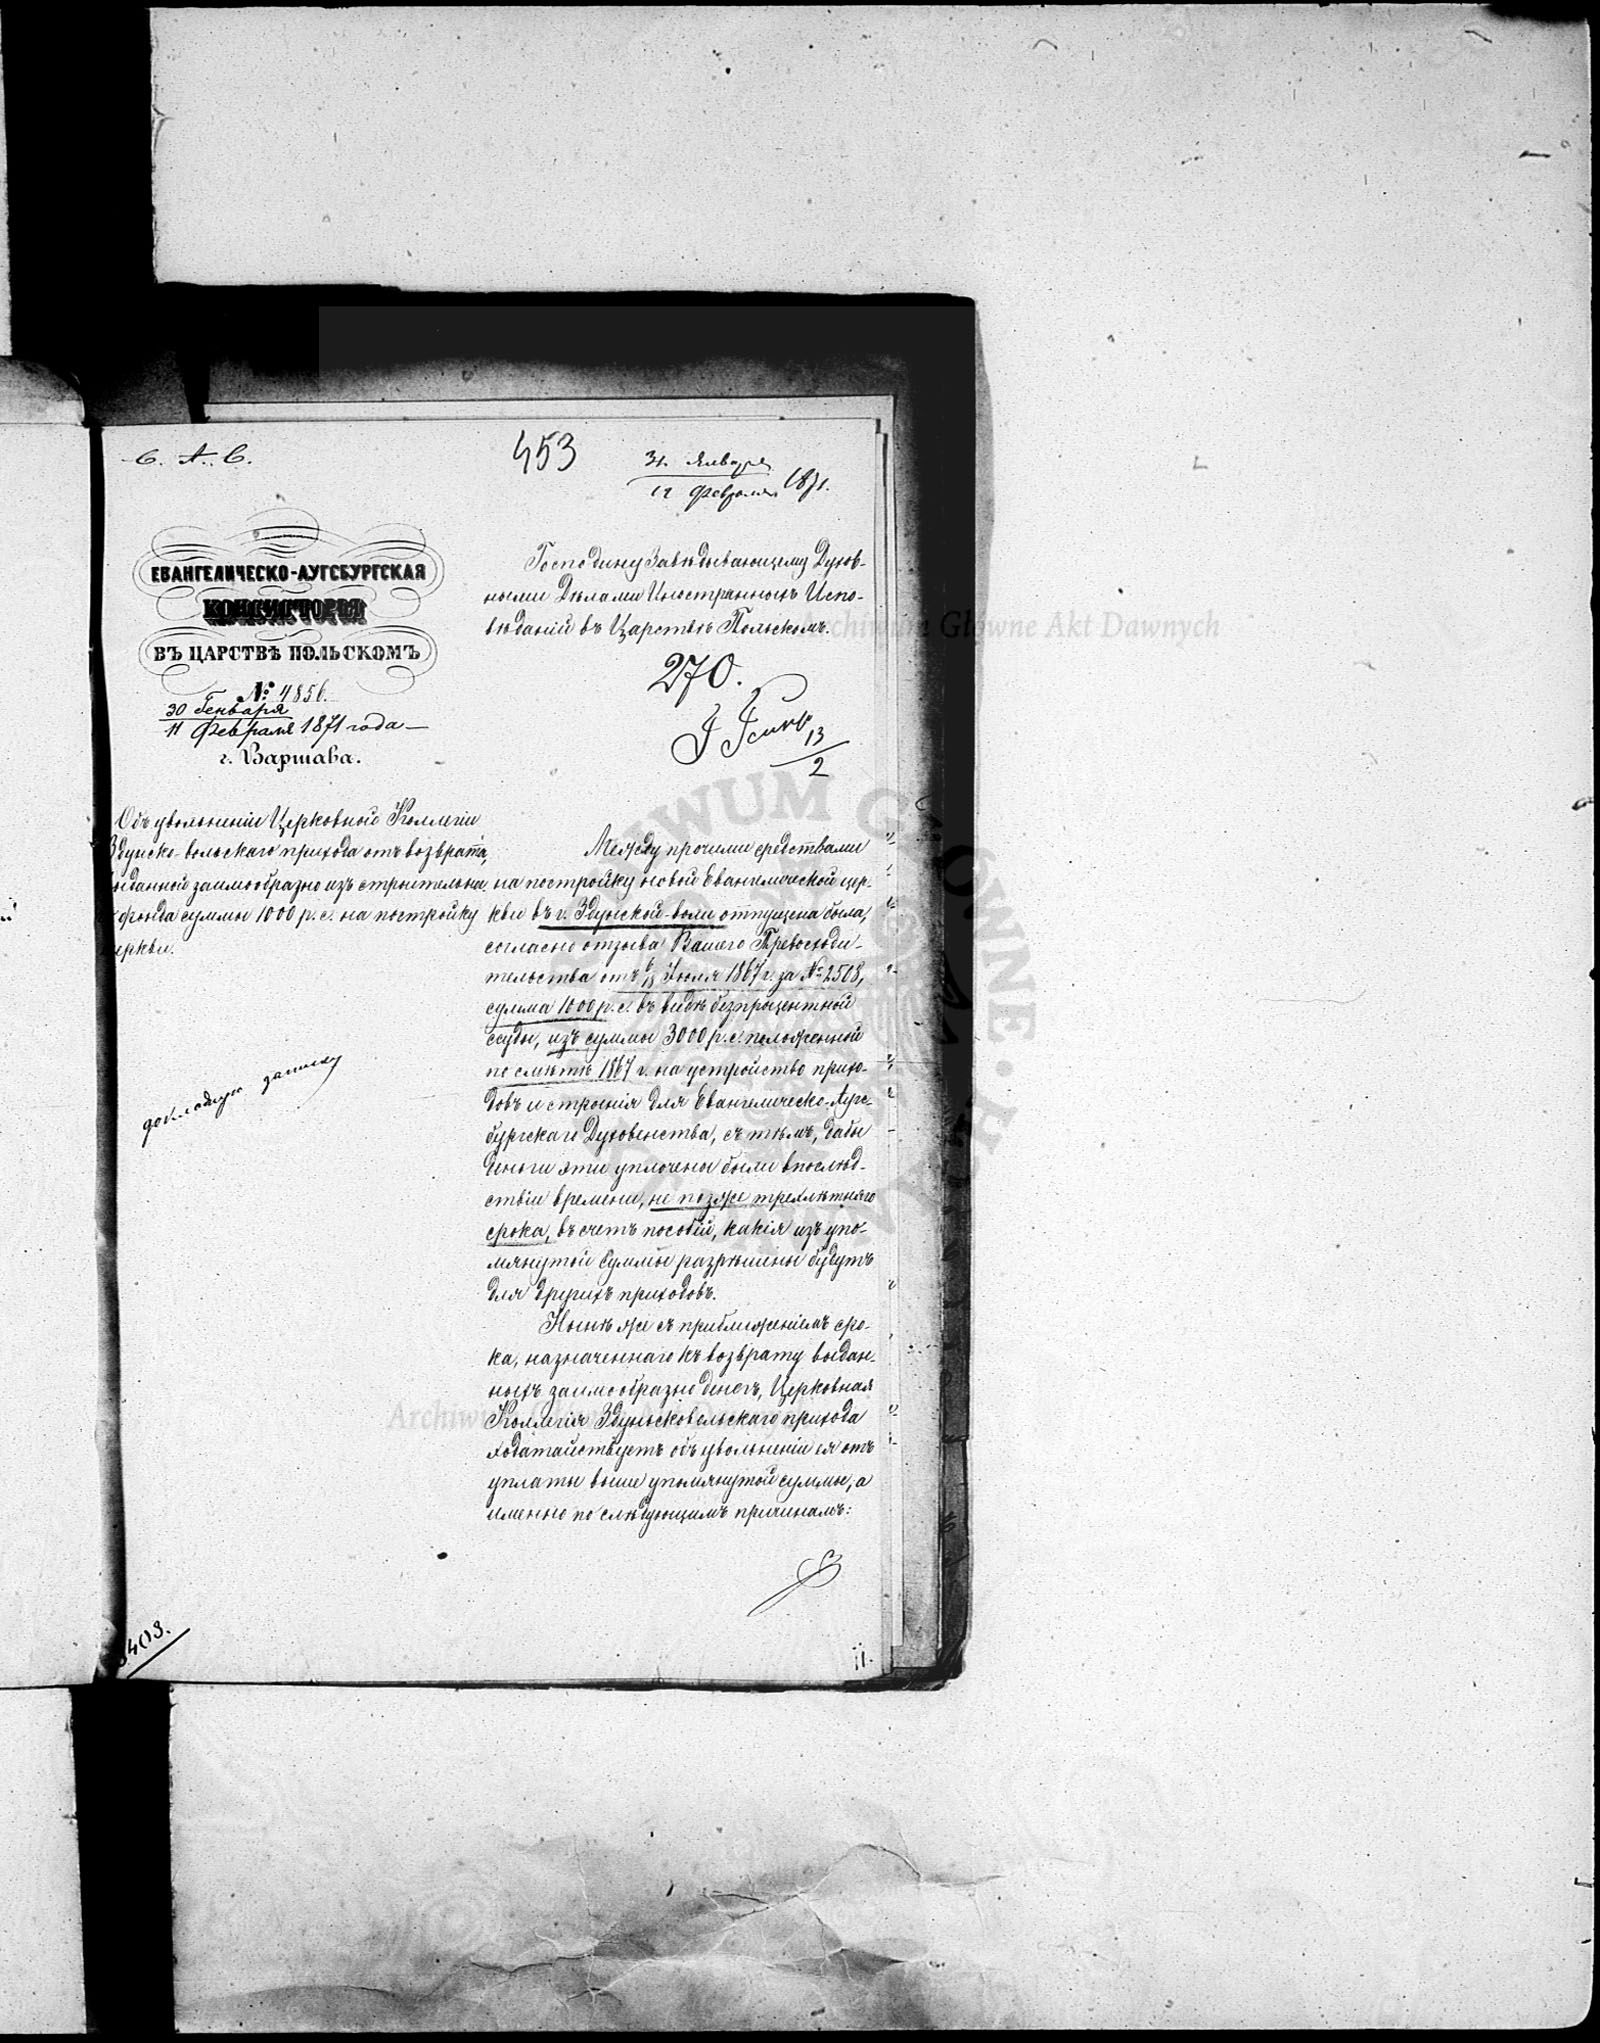 С. А. С.
453
31. Января
12 Февраля 1871.
ЕВАНГЕЛИЧЕСКО-АУГСБУРГСКАЯ
КОНСИСТОРІЯ
ВЪ ЦАРСТВѢ ПОЛЬСКОМЪ
№ 4856.
30 Генваря
11 Февраля 1871 года
г. Варшава.
Господину Завѣдывающему Духов-
ными Дѣлами Иностранныхъ Испо-
вѣданій въ Царствѣ Польскомъ.
270.
13
2
Объ увольненіи Церковной Коллегіи
Здунско-вольскаго прихода отъ возврата,
выданной заимообразно изъ строительна.
фонда суммы 1000 р. с. на постройку
церкви.
докладную записку
Между прочими средствами
на постройку новой Евангелической цер-
кви въ г. Здунской-воли отпущена была,
согласно отзыва Вашего Превосходи-
тельства отъ 6/18 Іюля 1867 г. за № 2508,
сумма 1000 р. с. въ видѣ безпроцентной
ссуды, изъ суммы 3000 р. с. положенной
по смѣтѣ 1867 г. на устройство прихо-
довъ и строенія для Евангелическо-Аугс-
бургскаго Духовенства, съ тѣмъ, дабы
деньги эти уплочены были впослѣд-
ствіи времени, не позже трехлѣтняго
срока, въ счетъ пособій, какія изъ упо-
мянутой суммы разрѣшены будутъ
для другихъ приходовъ.
Нынѣ же съ приближеніемъ сро-
ка, назначеннаго къ возврату выдан-
ныхъ заимообразно денегъ, Церковная
Коллегія Здуньсковольскаго прихода
ходатайствуетъ объ увольненіи ея отъ
уплаты выше упомянутой суммы, а
именно по слѣдующимъ причинамъ:
403.
11.
Archiwum Główne Akt Dawnych